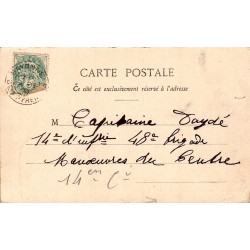 CARTE POSTALE
Ce côté est exclusivement réservé à l'adresse
M Capitaine Daydé
14e d'infie 48e brigade
Manœuvres du Centre
14e Cie